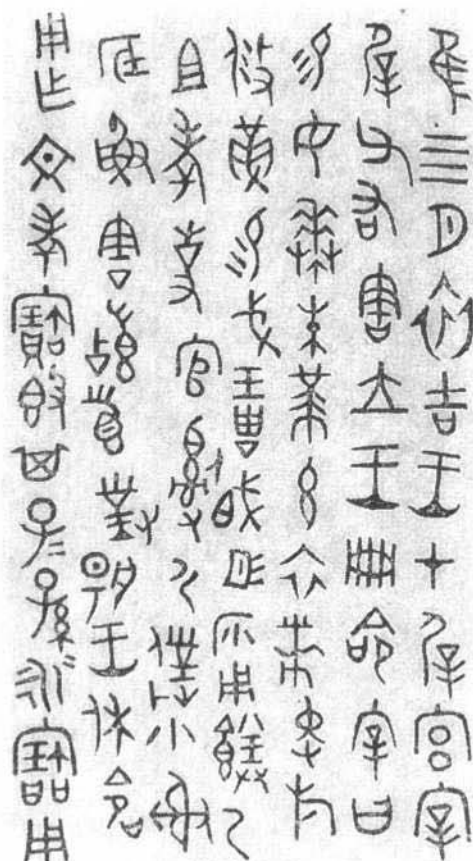 隹四月初吉王才屖宮宰
屖父右害立王冊命害曰
易女𠦪朱黃玄衣黹屯旂
攸革易戈琱㦸彤沙用乃
且考事官𤔲尸僕小射
底魚害稽首對揚王休命
用乍文考寶簋其子孫永寶用